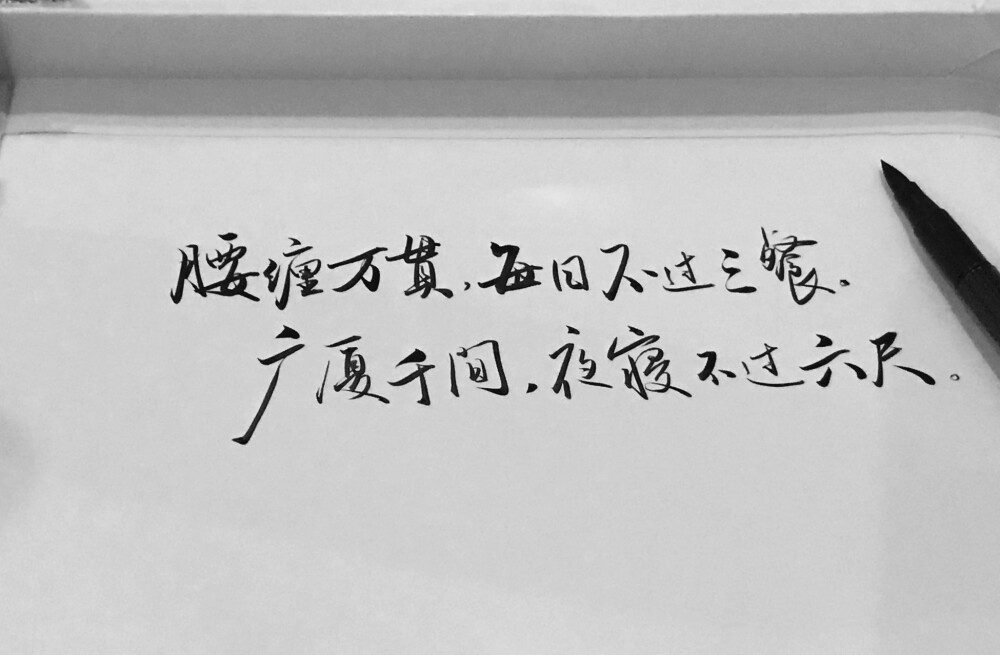 腰缠万贯,每日不过三餐.
广厦千间,夜寝不过六尺。